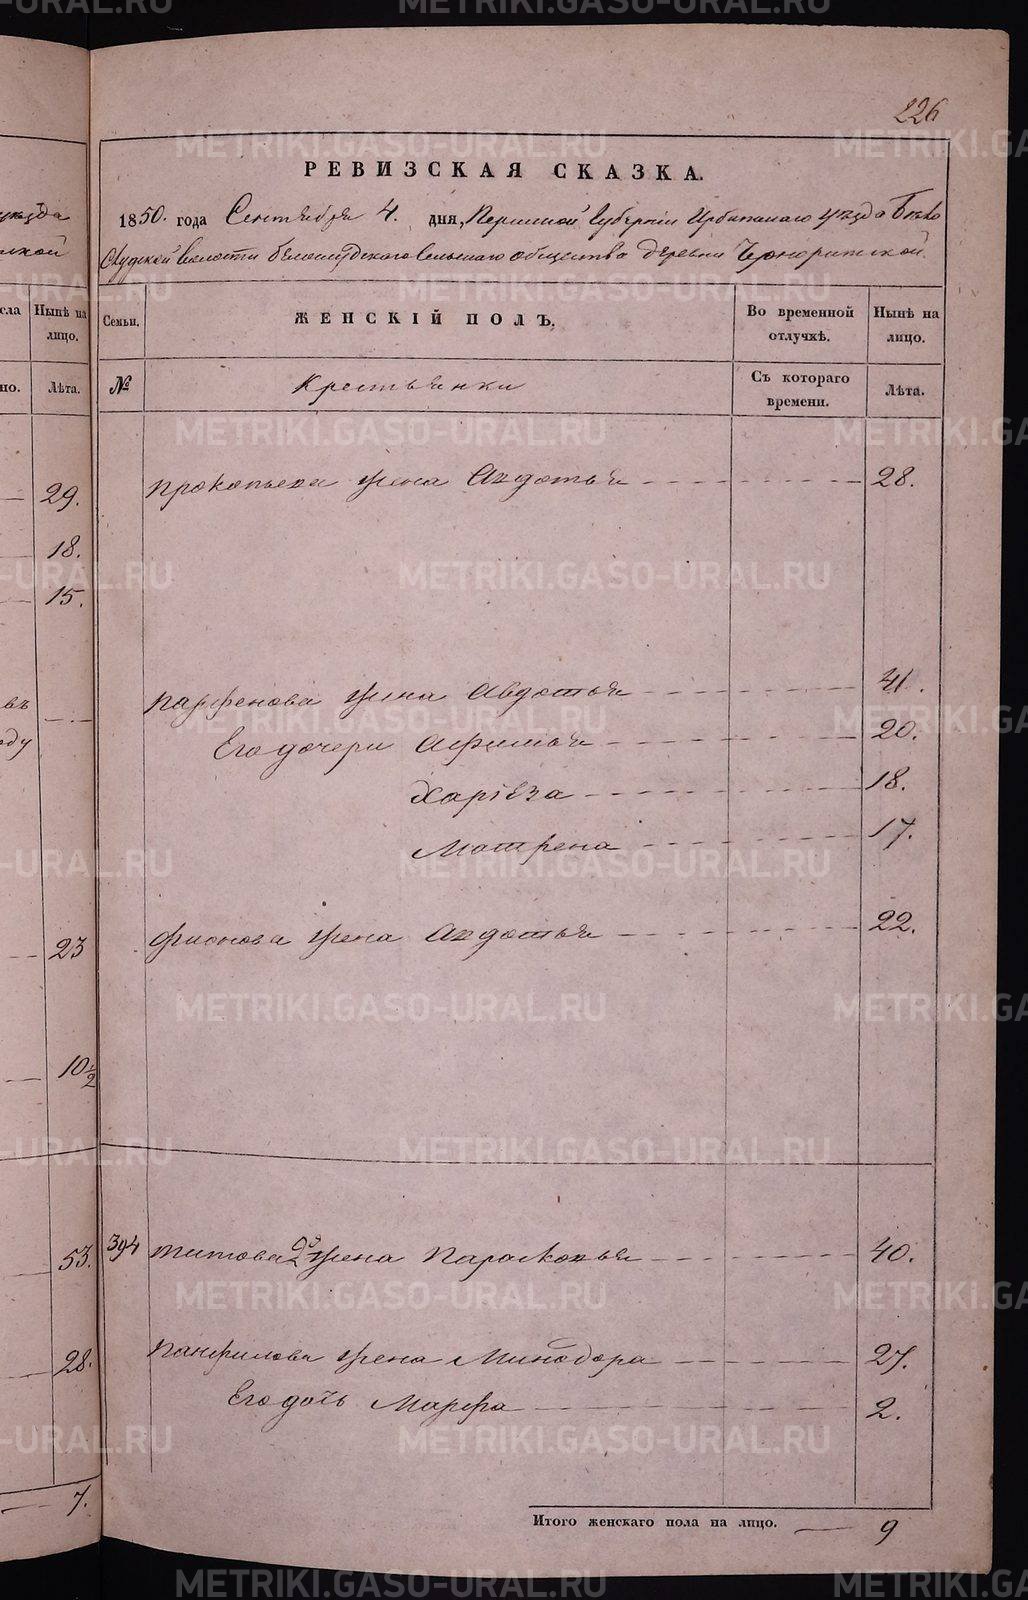 226
РЕВИЗСКАЯ СКАЗКА.
1850. года Сентября 4. дня, Пермской Губернiи Ирбитскаго уѣзда Бѣло
Слудской волости Белослудскаго сельскаго общества деревни
Семьи. ЖЕНСКІЙ ПОЛЪ. Во временной отлучкѣ. Нынѣ на лицо.
№ Крестьянки Съ котораго времени. Лѣта.
Прокопьева жена Авдотья 28.
Парфенова жена Авдотья 41.
Его дочери Афимья 20.
18.
Матрена 17.
Фионова жена Авдотья 22.
394 Титова 2я жена Парасковья 40.
Панфилова жена Минодора 27.
Его дочь Марфа 2.
Итого женскаго пола на лицо. 9
Нынѣ на лицо.
Лѣта.
29.
18.
15.
23
10 1/2
53.
28.
7.
METRIKI.GASO-URAL.RU